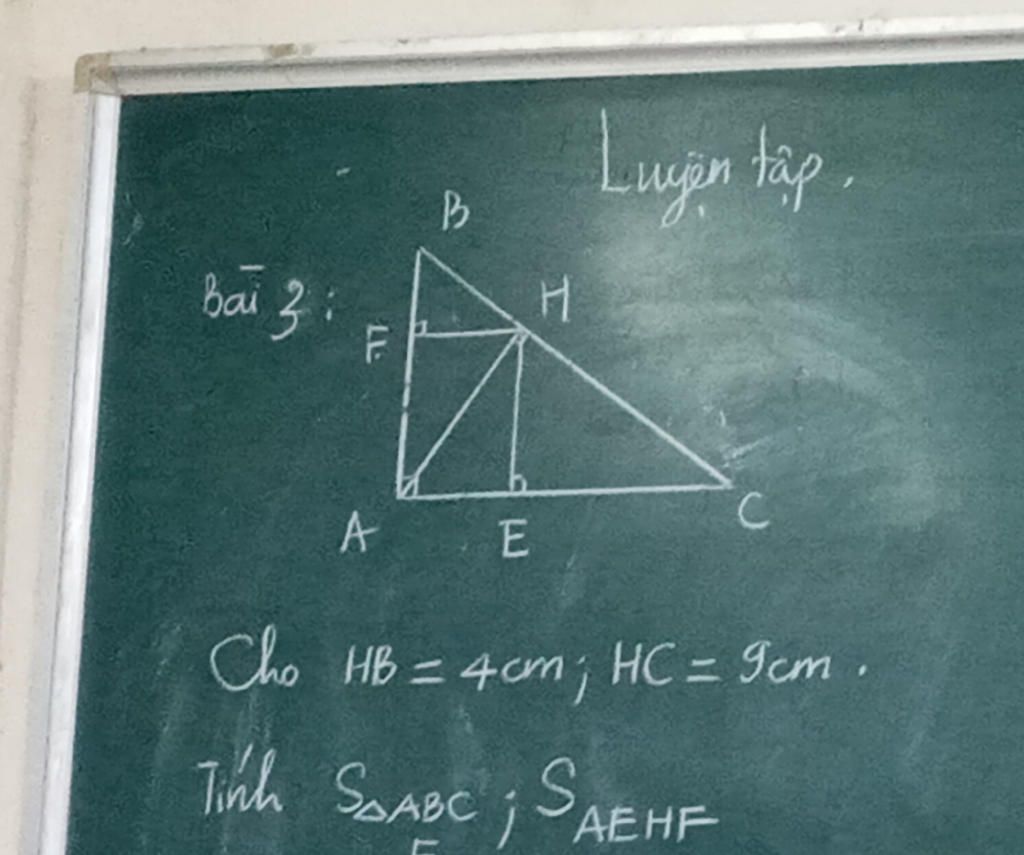 Luyện tập.
B
Bài 3:
H
F
A
E
C
Cho HB = 4cm; HC = 9cm.
Tính S△ABC; SAEHF